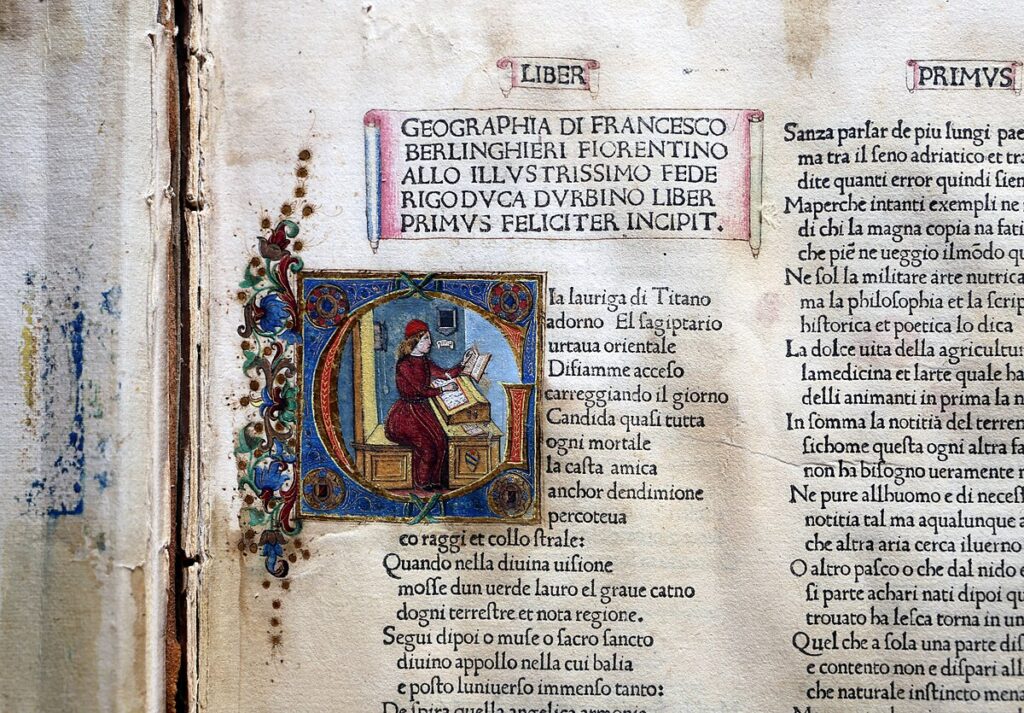 LIBER
PRIMVS
GEOGRAPHIA DI FRANCESCO
BERLINGHIERI FIORENTINO
ALLO ILLVSTRISSIMO FEDE
RIGO DVCA DVRBINO LIBER
PRIMVS FELICITER INCIPIT.
GIa lauriga di Titano
adorno El ſagiptario
urtaua orientale
Diſiamme acceſo
carreggiando il giorno
Candida quaſi tutta
ogni mortale
la caſta amica
anchor dendimione
percoteua
co raggi et collo ſtrale:
Quando nella diuina uiſione
moſſe dun uerde lauro el graue catno
dogni terreſtre et nota regione.
Segui dipoi o muſe o ſacro ſancto
diuino appollo nella cui balia
e poſto luniuerſo immenſo tanto:
De ſpira quella angelica armonia
Sanza parlar de piu lungi
ma tra il ſeno adriatico et
dite quanti error quindi
Maperche intanti exempli ne
di chi la magna copia na
che pie ne ueggio ilmōdo
Ne ſol la militare arte
ma la philoſophia et la
hiſtorica et poetica lo dica
La dolce uita della
lamedicina et larte quale
delli animanti in prima la
In ſomma la notitia del
ſichome queſta ogni altra
non ha biſogno ueramente
Ne pure allhuomo e di
notitia tal ma aqualunque
che altra aria cerca iluerno
O altro paſco o che dal nido
ſi parte achari nati dipoi
trouato ha leſca torna in
Quel che a ſola una parte
e contento non e diſpari
che naturale inſtincto